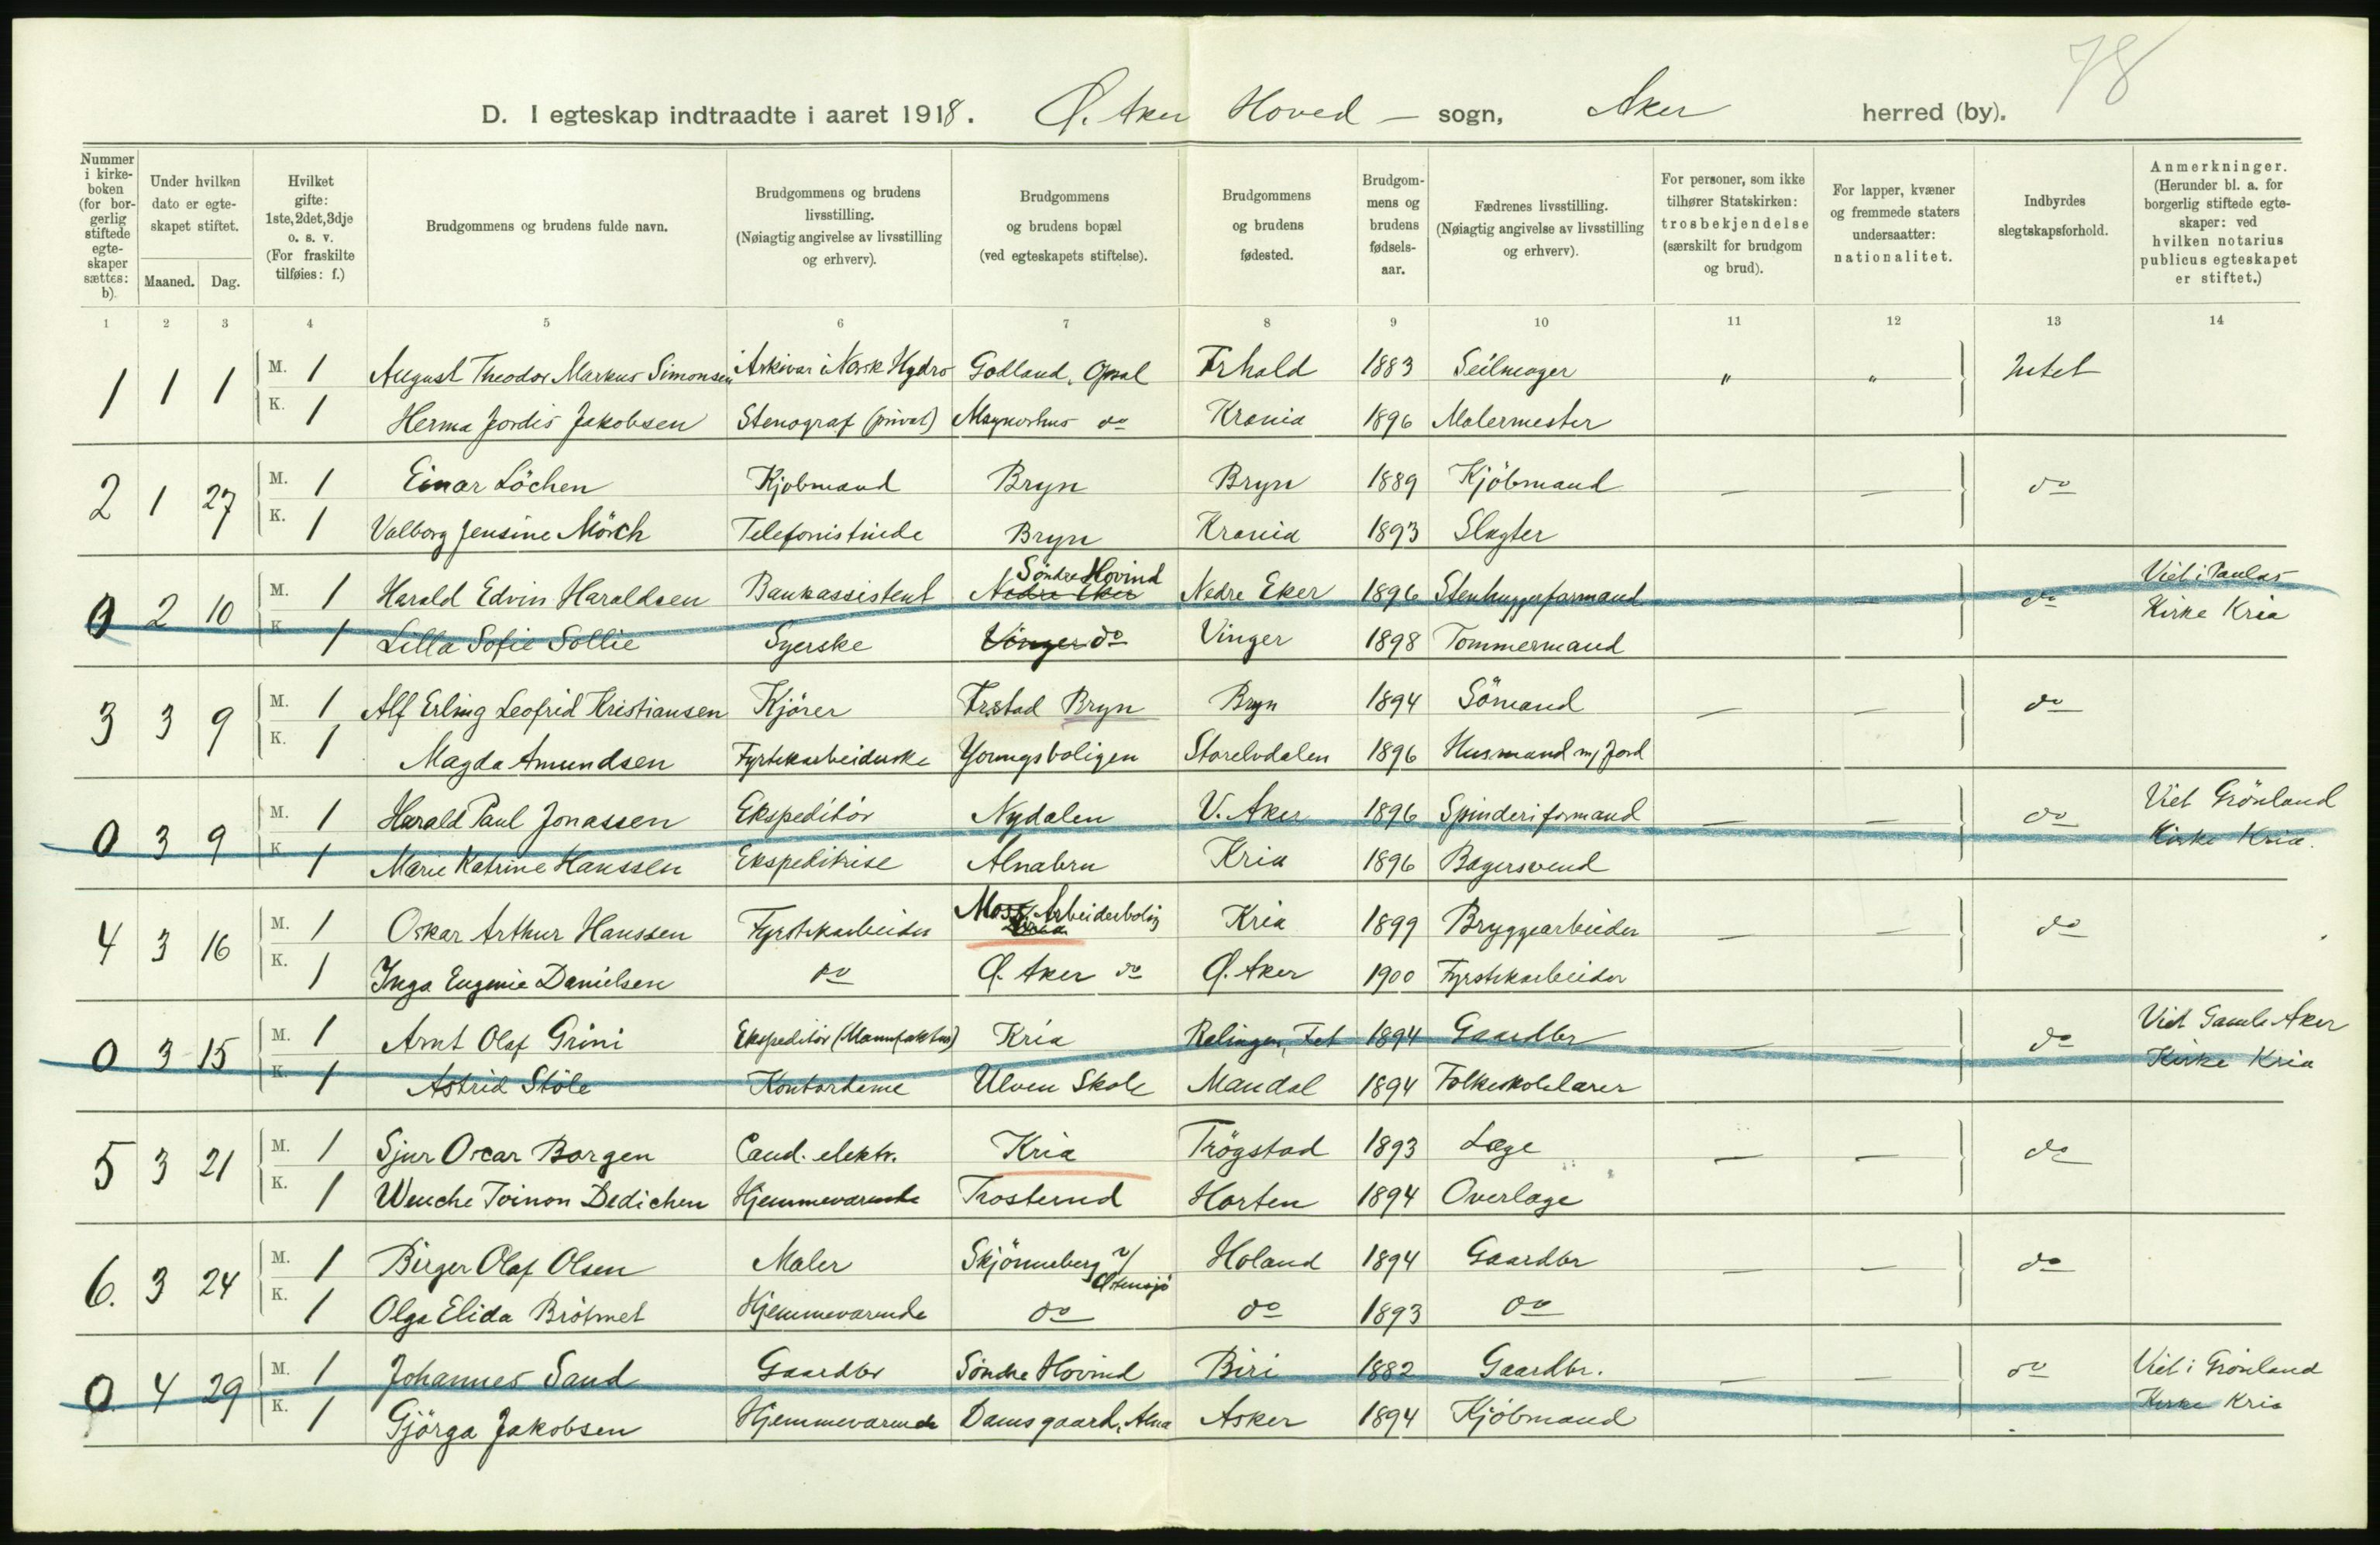 78
D. I egteskap indtraadte i aaret 1918. Ø. Aker Hoved — sogn, Aker herred (by).
Nummer i kirke-boken (for bor-gerlig stiftede egte-skaper sættes: b).
Under hvilken dato er egte-skapet stiftet.
Maaned. Dag.
Hvilket gifte: 1ste, 2det, 3dje o. s. v. (For fraskilte tilføies: f.)
Brudgommens og brudens fulde navn.
Brudgommens og brudens livsstilling. (Nøiagtig angivelse av livsstilling og erhverv).
Brudgommens og brudens bopæl (ved egteskapets stiftelse).
Brudgommens og brudens fødested.
Brudgom-mens og brudens fødsels-aar.
Fædrenes livsstilling. (Nøiagtig angivelse av livsstilling og erhverv).
For personer, som ikke tilhører Statskirken: trosbekjendelse (særskilt for brudgom og brud).
For lapper, kvæner og fremmede staters undersaatter: nationalitet.
Indbyrdes slegtskapsforhold.
Anmerkninger. (Herunder bl. a. for borgerlig stiftede egte-skaper: ved hvilken notarius publicus egteskapet er stiftet.)
1 2 3 4 5 6 7 8 9 10 11 12 13 14
1 1 1 M. 1 August Theodor Markus Simonsen Arkivar i Norsk Hydro Godland, Opsal Frhald 1883 Seilmager " " Intet
K. 1 Herma Jordis Jakobsen Stenograf (privat) do Krania 1896 Malermester
2 1 27 M. 1 Einar Löchen Kjøbmand Bryn Bryn 1889 Kjöbmand — — do
K. 1 Valborg Jensine Mörch Telefonistinde Bryn Krania 1893 Slagter
0 2 10 M. 1 Harald Edvin Haraldsen Bankassistent Nedre Eker Söndre Hovind Nedre Eker 1896 Stenhuggerformand — — do Viet i Paulus
K. 1 Lilla Sofie Sollie Syerske Vinger do Vinger 1898 Tommermand Kirke Kria
3 3 9 M. 1 Alf Erling Leofrid Kristiansen Kjörer Bryn Bryn 1894 Sömand — — do
K. 1 Magda Amundsen Fyrstikarbeiderske Youngsboligen Storelvdalen 1896 Husmand m/ Jord
0 3 9 M. 1 Harald Paul Jonassen Ekspeditör Nydalen V. Aker 1896 Spinderiformand — — do Viet Grönland
K. 1 Marie Katrine Hanssen Ekspeditrise Alnabru Kria 1896 Bagersvend Kirke Kria.
4 3 16 M. 1 Oskar Arthur Hanssen Fyrstikarbeider Arbeiderbolig Kria 1899 Bryggearbeider — — do
K. 1 Inga Eugenie Danielsen do Ø. Aker do Ø. Aker 1900 Fyrstikarbeider
0 3 15 M. 1 Arnt Olaf Grini Ekspeditör (Manufaktur) Kria Relingen, Fet 1894 Gaardbr — — do Viet Gamle Aker
K. 1 Astrid Stöle Kontordame Ulven Skole Mandal 1894 Folkeskolelærer Kirke Kria
5 3 21 M. 1 Sjur Oscar Borgen Cand. elektr. Kria Trögstad 1893 Læge — — do
K. 1 Wenche Toinon Dedichen Hjemmeværende Trosterud Horten 1894 Overlæge
6. 3 24 M. 1 Birger Olaf Olsen Maler Skjönneberg v/ Østensjö Holand 1894 Gaardbr — — do
K. 1 Olga Elida Brötmet Hjemmeværende do do 1893 do
0. 4 29 M. 1 Johannes Sand Gaardbr Söndre Hovind Biri 1882 Gaardbr. — — do Viet i Grönland
K. 1 Gjörga Jakobsen Hjemmeværende Damsgaard, Alna Asker 1894 Kjöbmand Kirke Kria